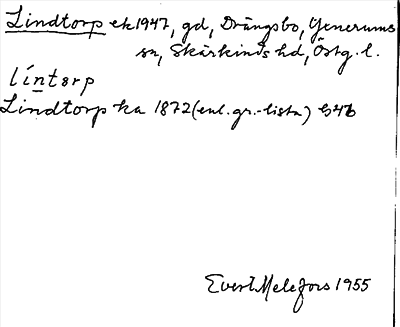 Lindtorp ek. 1947, gd, Drängsbo, Yxnerums
sn, Skärkinds hd, Östg. l.
líntɵrp
Lindtorp ka 1872 (enl. gr.-lista)
Evert Melefors 1955